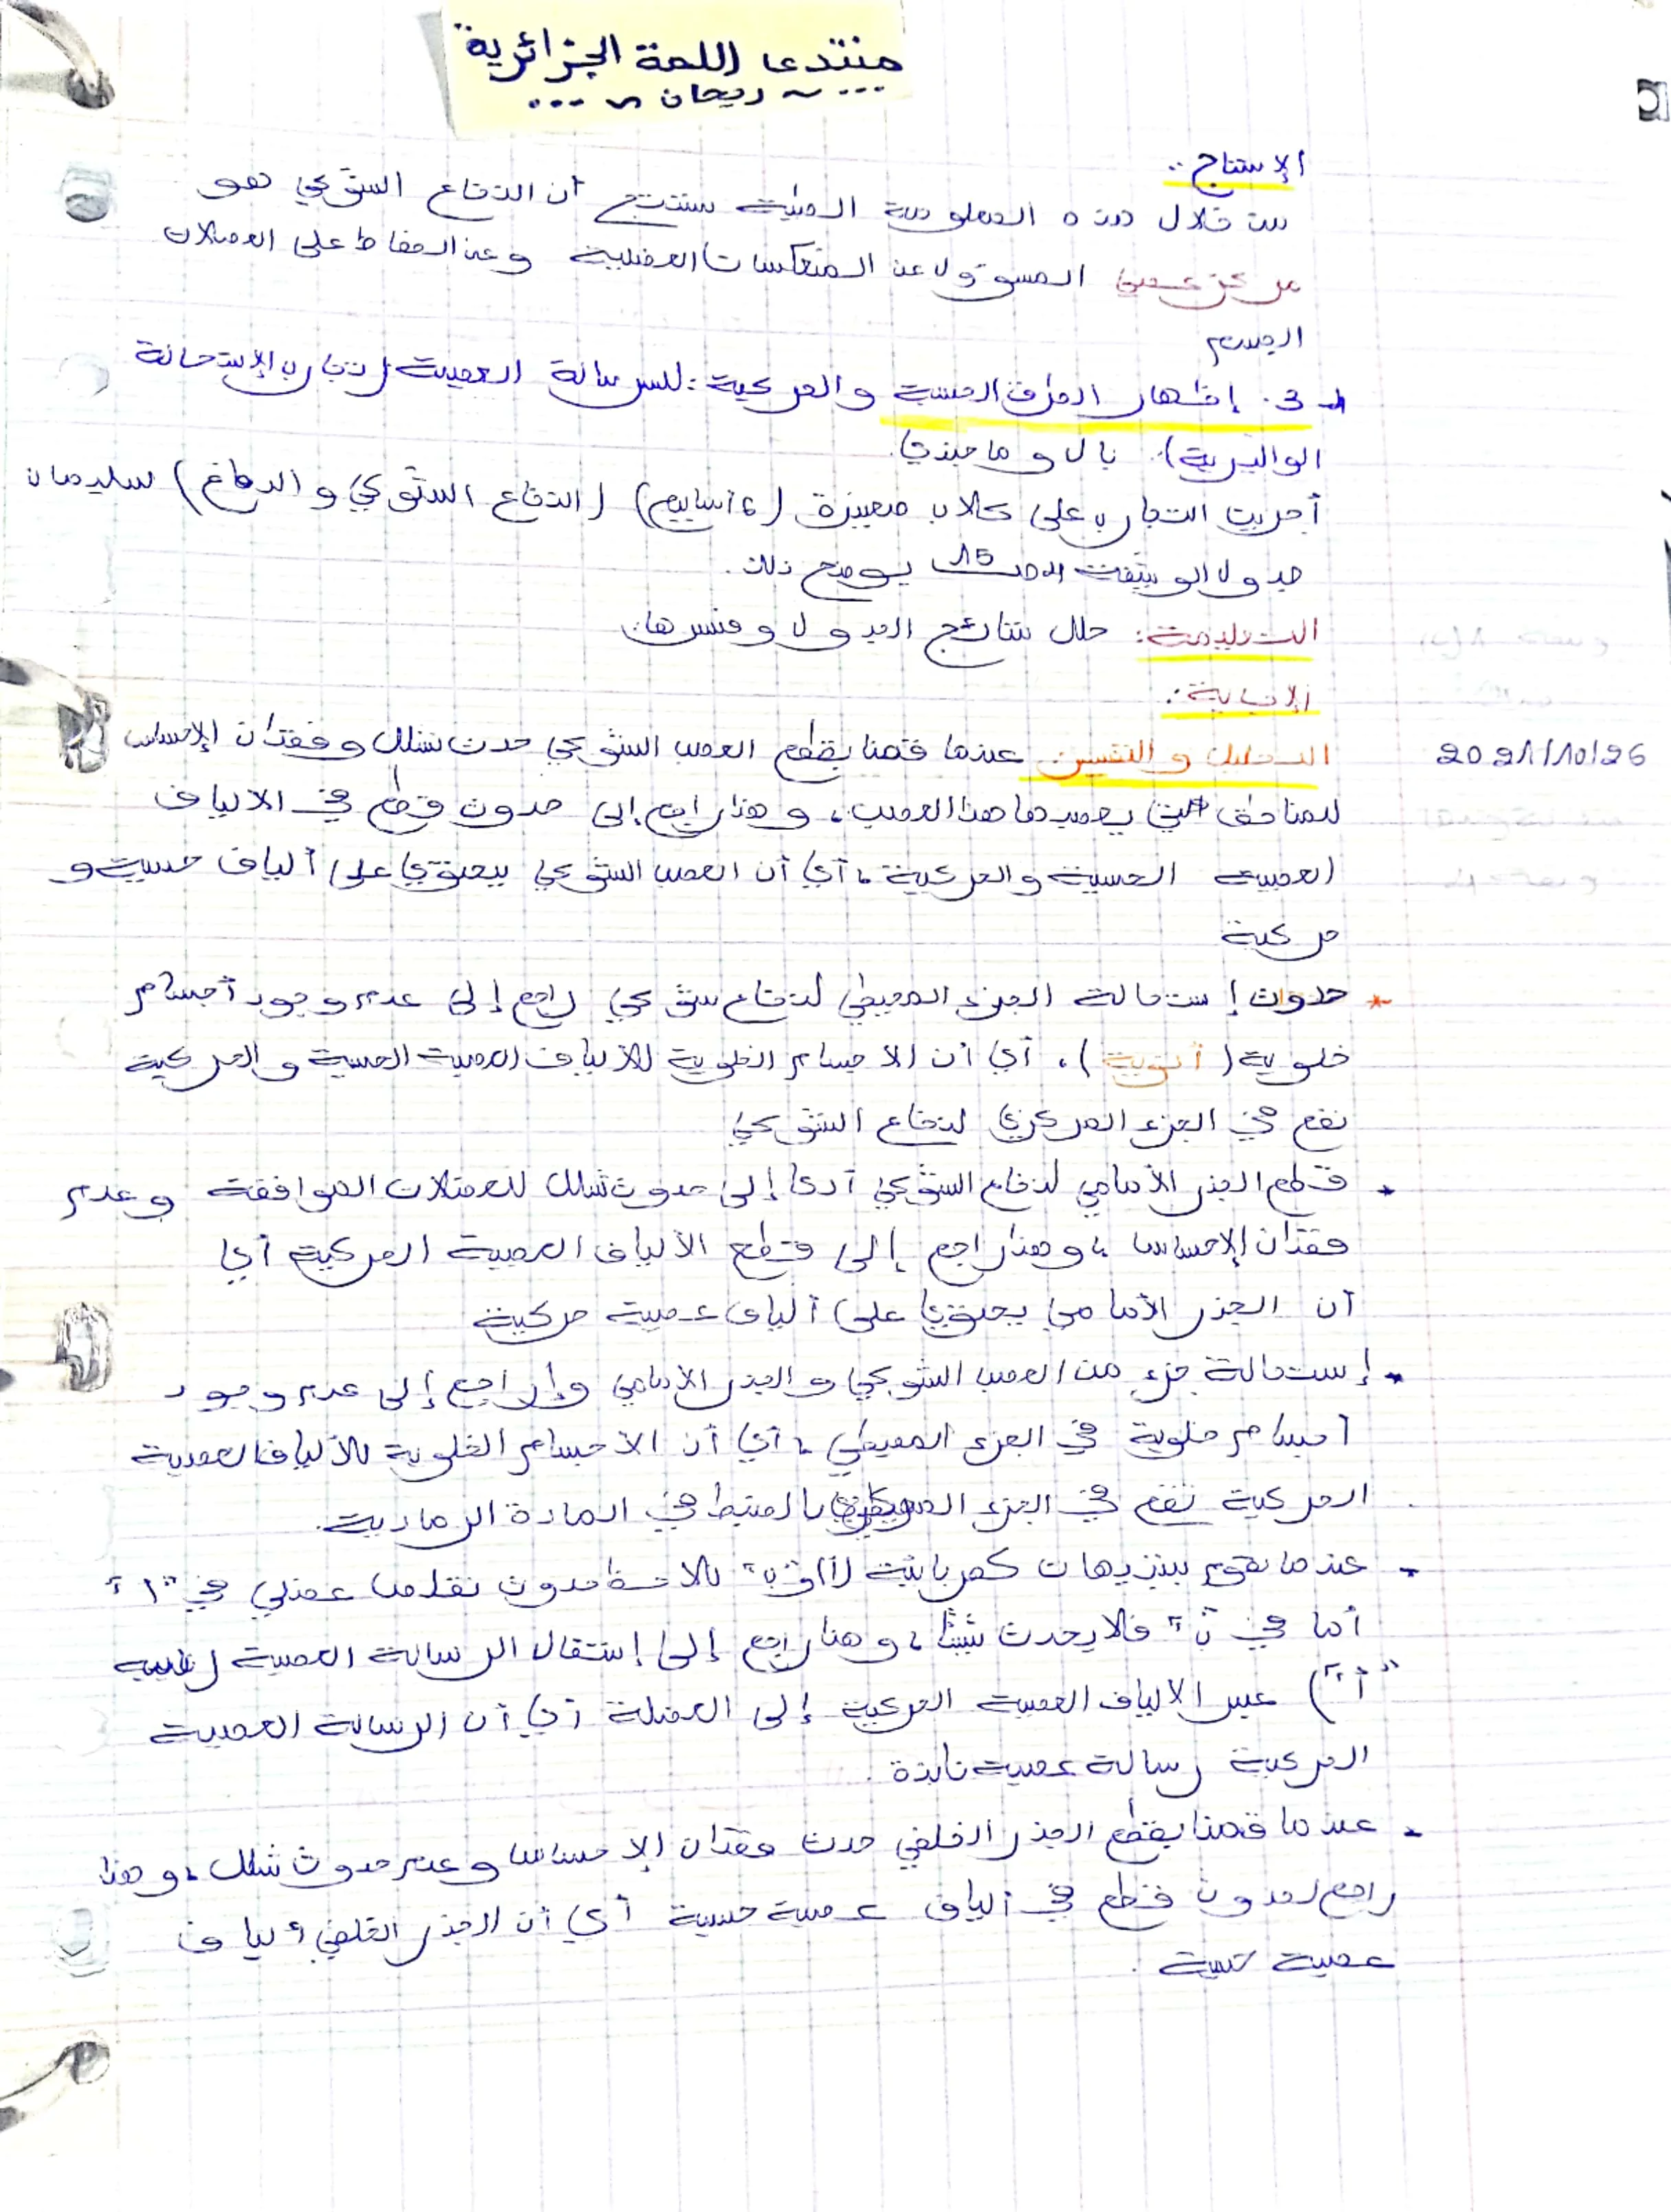 منتدى اللمة الجزائرية
... ~ ريحان ~ ...
الإستنتاج:
من خلال هذه المعلومة الطبية نستنتج أن النخاع الشوكي هو
مركز عصبي المسؤول عن المنعكسات العضلية وعن الحفاظ على العضلات
الجسم
3. إظهار الطرق الحسية والحركية للرسالة العصبية (تجارب الإستحالة
الواليرية). بال و ماجندي.
أجريت التجارب على كلاب مميزة (6 أسابيع) (النخاع الشوكي والدماغ) سليمان
جدول الوثيقة 15 يوضح ذلك.
التعليمة: حلل نتائج الجدول وفسرها.
الإجابة:
2021/10/26
التحليل والتفسير: عندما قمنا بقطع العصب الشوكي حدث شلل وفقدان الإحساس
للمناطق التي يعصبها هذا العصب، وهذا راجع إلى حدوث قطع في الألياف
العصبية الحسية والحركية، أي أن العصب الشوكي يحتوي على ألياف حسية و
حركية
* حدوث إستحالة الجزء المحيطي لنخاع شوكي راجع إلى عدم وجود أجسام
خلوية (أنوية)، أي أن الأجسام الخلوية للألياف العصبية الحسية والحركية
تقع في الجزء المركزي لنخاع الشوكي
* قطع الجذر الأمامي لنخاع الشوكي أدى إلى حدوث شلل للعضلات الموافقة وعدم
فقدان الإحساس، وهذا راجع إلى قطع الألياف العصبية الحركية أي
أن الجذر الأمامي يحتوي على ألياف عصبية حركية
* إستحالة جزء من العصب الشوكي والجذر الأمامي راجع إلى عدم وجود
أجسام خلوية في الجزء المحيطي، أي أن الأجسام الخلوية للألياف العصبية
الحركية تقع في الجزء المركزي بالضبط في المادة الرمادية.
* عندما نقوم بتنبيهات كهربائية نلاحظ حدوث تقلص عضلي في "أ"
أما في "ب" فلا يحدث شيئا، وهذا راجع إلى إنتقال الرسالة العصبية (تنبيه
"أ") عبر الألياف العصبية الحركية إلى العضلة أي أن الرسالة العصبية
الحركية رسالة عصبية نابذة.
* عندما قمنا بقطع الجذر الخلفي حدث فقدان الإحساس وعدم حدوث شلل، وهذا
راجع لحدوث قطع في ألياف عصبية حسية أي أن الجذر الخلفي ألياف
عصبية حسية.